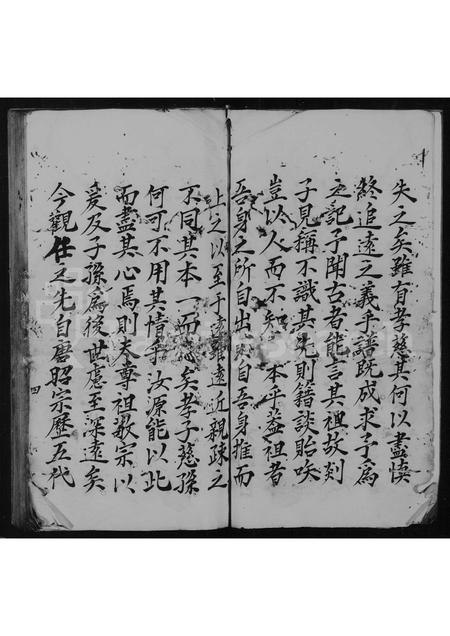 失之矣雖有孝慈其何以盡慎
終追遠之義乎譜既成求予為
之記予聞古者能言其祖故剡
子見稱不識其先則籍談貽咲
豈以人而不知本乎蓋祖者
吾身之所自出自吾身推而
上之以至于遠雖遠近親疎之
不同其本一而矣孝子慈孫
何可不用其情乎汝源能以此
而盡其心焉則夫尊祖敬宗以
爰及子孫為後世慮至深遠矣
今觀任之先自唐昭宗歷五代
四